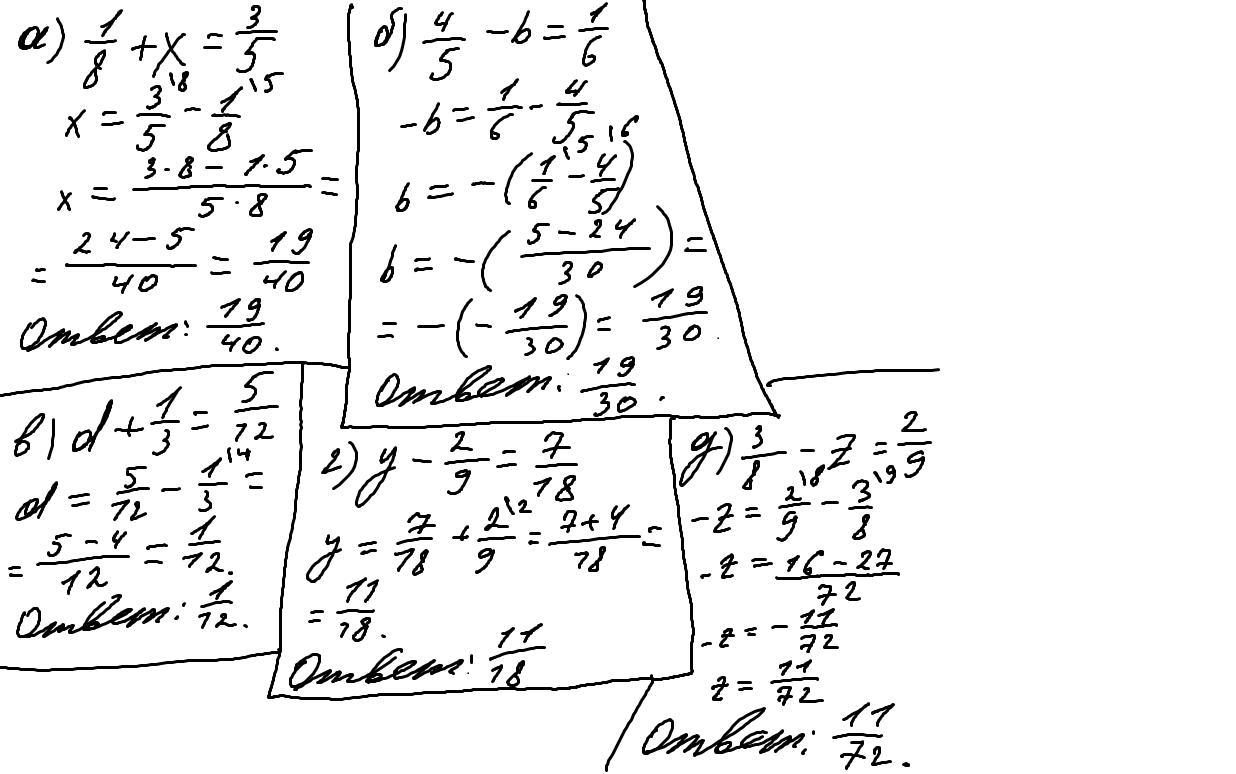 а) 1/8 + x = 3/5
x = 3/5 \8 - 1/8 \5
x = (3·8 - 1·5)/(5·8) =
= (24 - 5)/40 = 19/40
Ответ: 19/40.
б) 4/5 - b = 1/6
-b = 1/6 - 4/5
b = -(1/6 \5 - 4/5 \6)
b = -((5 - 24)/30) =
= -(-19/30) = 19/30
Ответ: 19/30.
в) d + 1/3 = 5/12
d = 5/12 - 1/3 \4 =
= (5 - 4)/12 = 1/12.
Ответ: 1/12.
г) y - 2/9 = 7/18
y = 7/18 + 2/9 \2 = (7 + 4)/18 =
= 11/18.
Ответ: 11/18
д) 3/8 - z = 2/9
-z = 2/9 \8 - 3/8 \9
-z = (16 - 27)/72
-z = -11/72
z = 11/72
Ответ: 11/72.